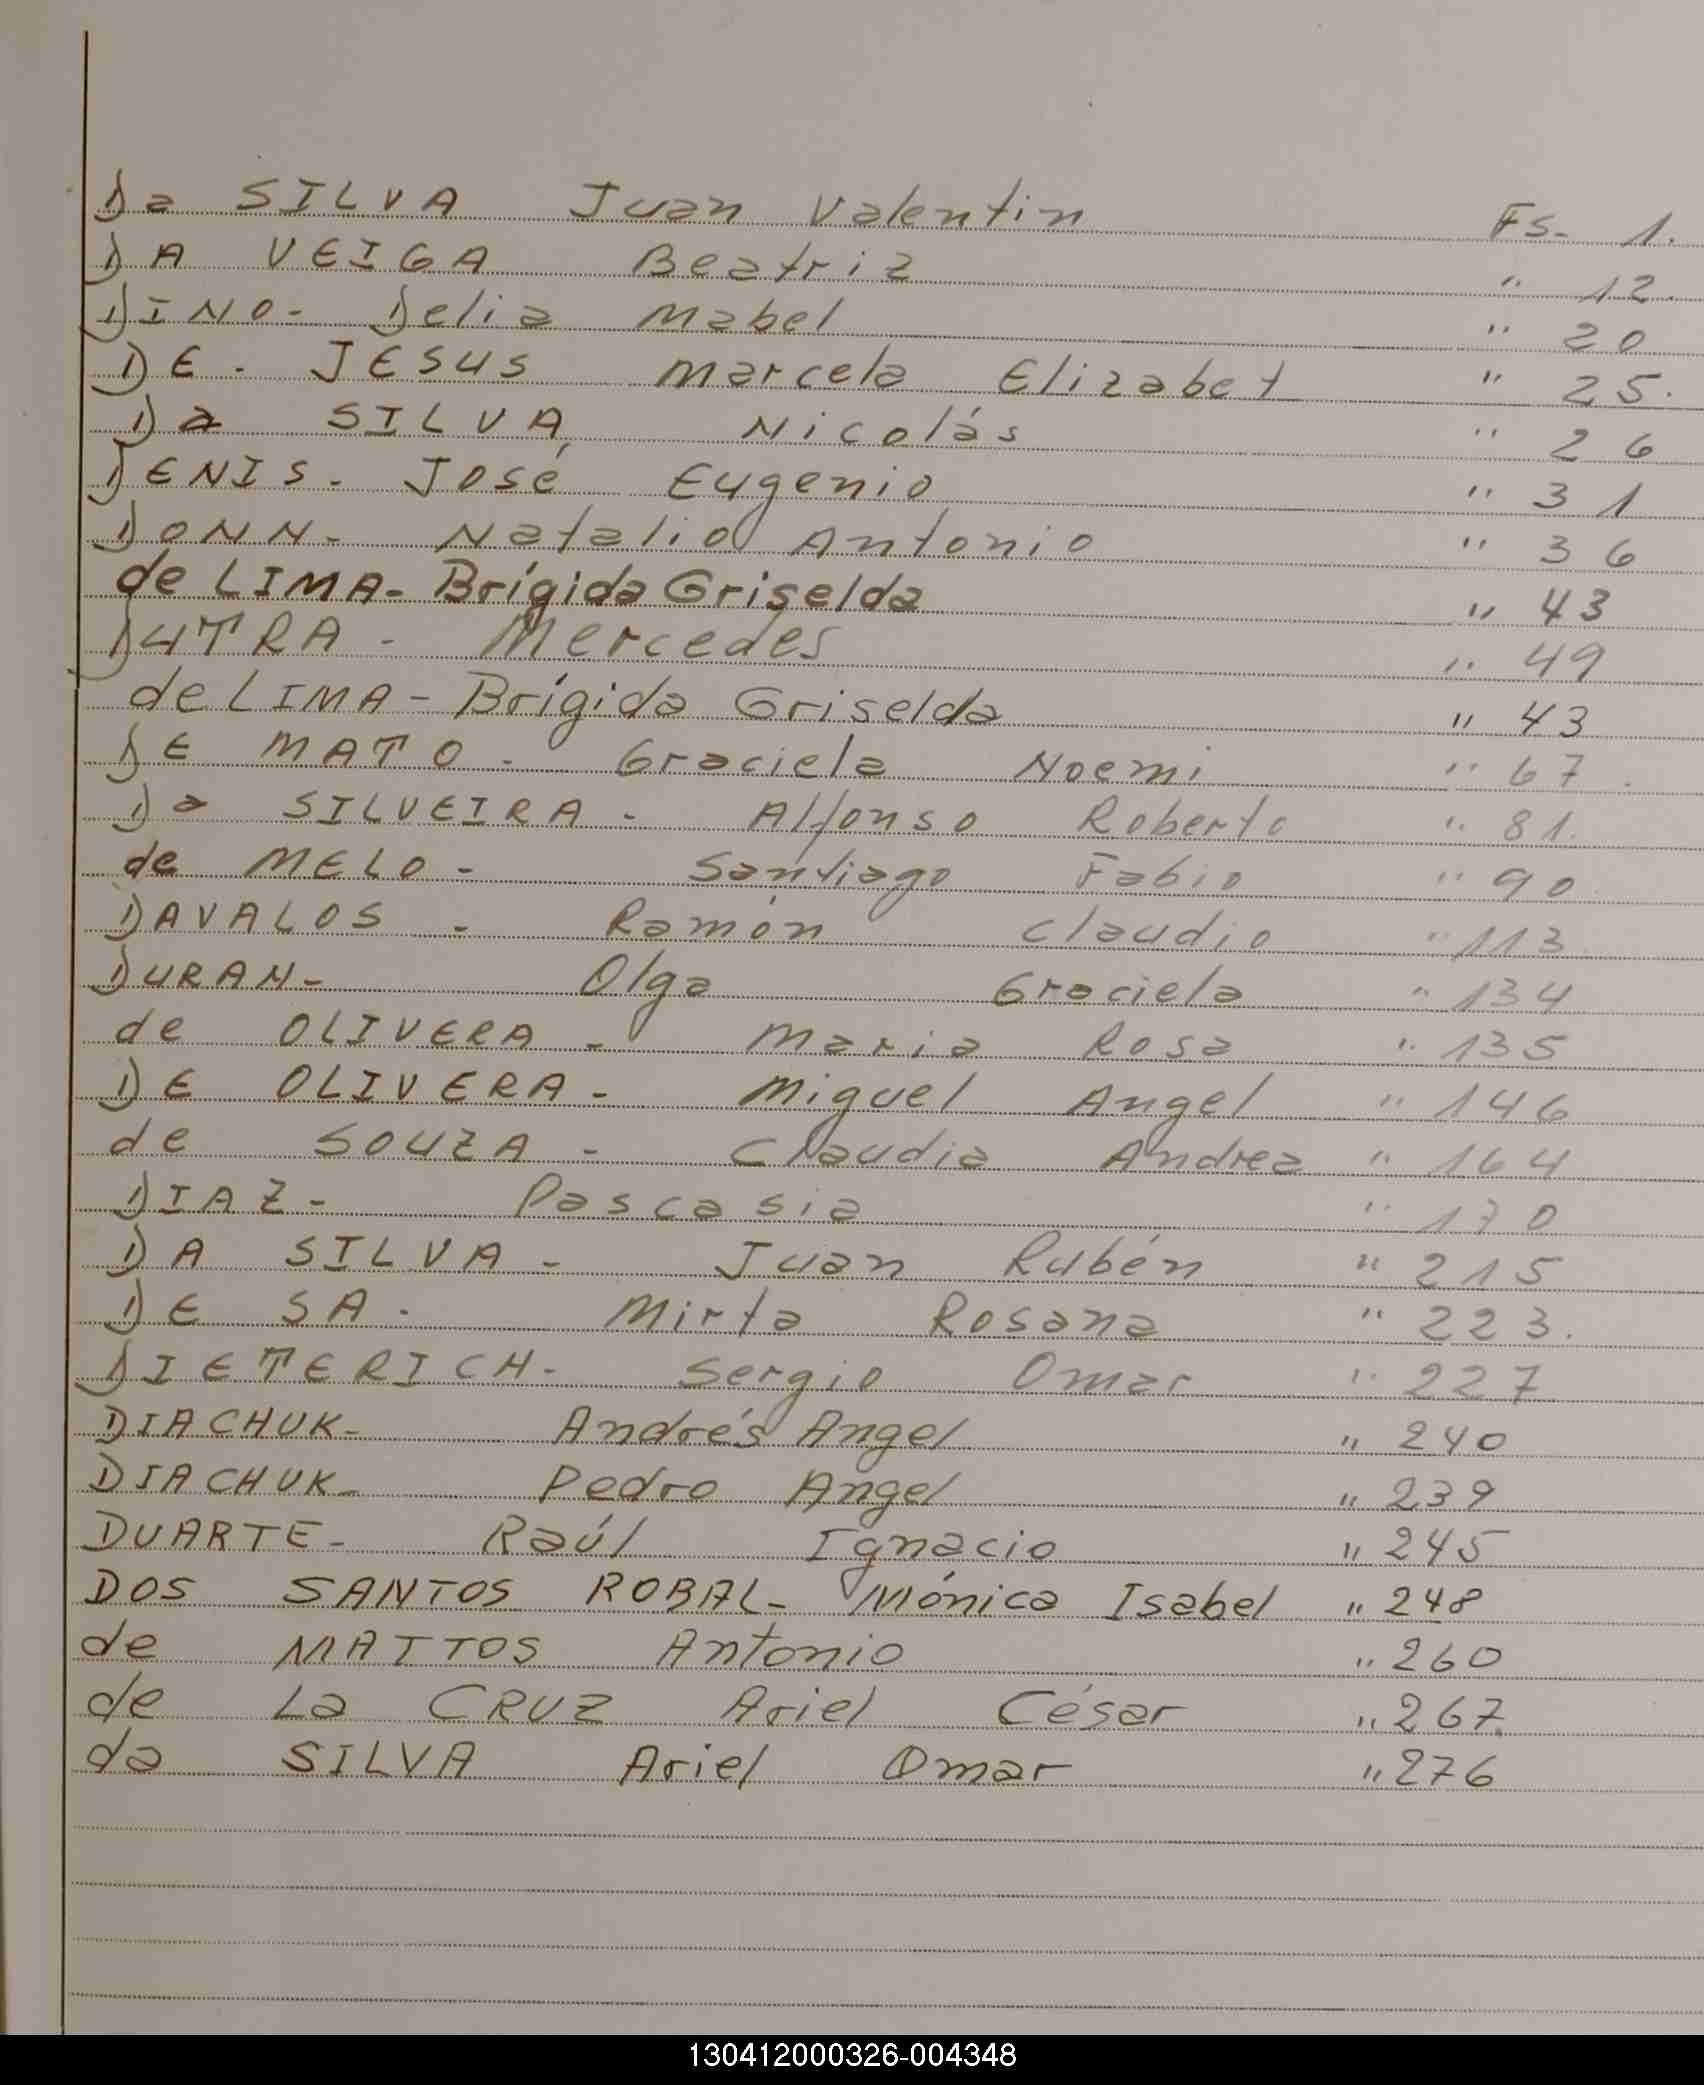 Da SILVA Juan Valentin Fs. 1.
DA VEIGA Beatriz " 12.
DINO- Delia Mabel " 20
DE. JESUS Marcela Elizabet " 25.
Da SILVA, Nicolás " 26
DENIS. José Eugenio " 31
DONN- Natalio Antonio " 36
de LIMA- Brígida Griselda " 43
DUTRA - Mercedes " 49
de LIMA - Brígida Griselda " 43
DE MATO - Graciela Noemi " 67.
Da SILVEIRA - Alfonso Roberto " 81.
de MELO - Santiago Fabio " 90
DAVALOS - Ramón Claudio " 113
DURAN- Olga Graciela " 134
de OLIVERA - Maria Rosa " 135
DE OLIVERA - Miguel Angel " 146
de SOUZA - Claudia Andrea " 164
DIAZ - Pascasia " 170
DA SILVA - Juan Rubén " 215
DE SA - Mirta Rosana " 223.
DIETERICH- Sergio Omar " 227
DIACHUK- Andrés Angel " 240
DIACHUK- Pedro Angel " 239
DUARTE- Raúl Ignacio " 245
DOS SANTOS ROBAL- Mónica Isabel " 248
de MATTOS Antonio " 260
de La CRUZ Ariel César " 267.
da SILVA Ariel Omar " 276
130412000326-004348